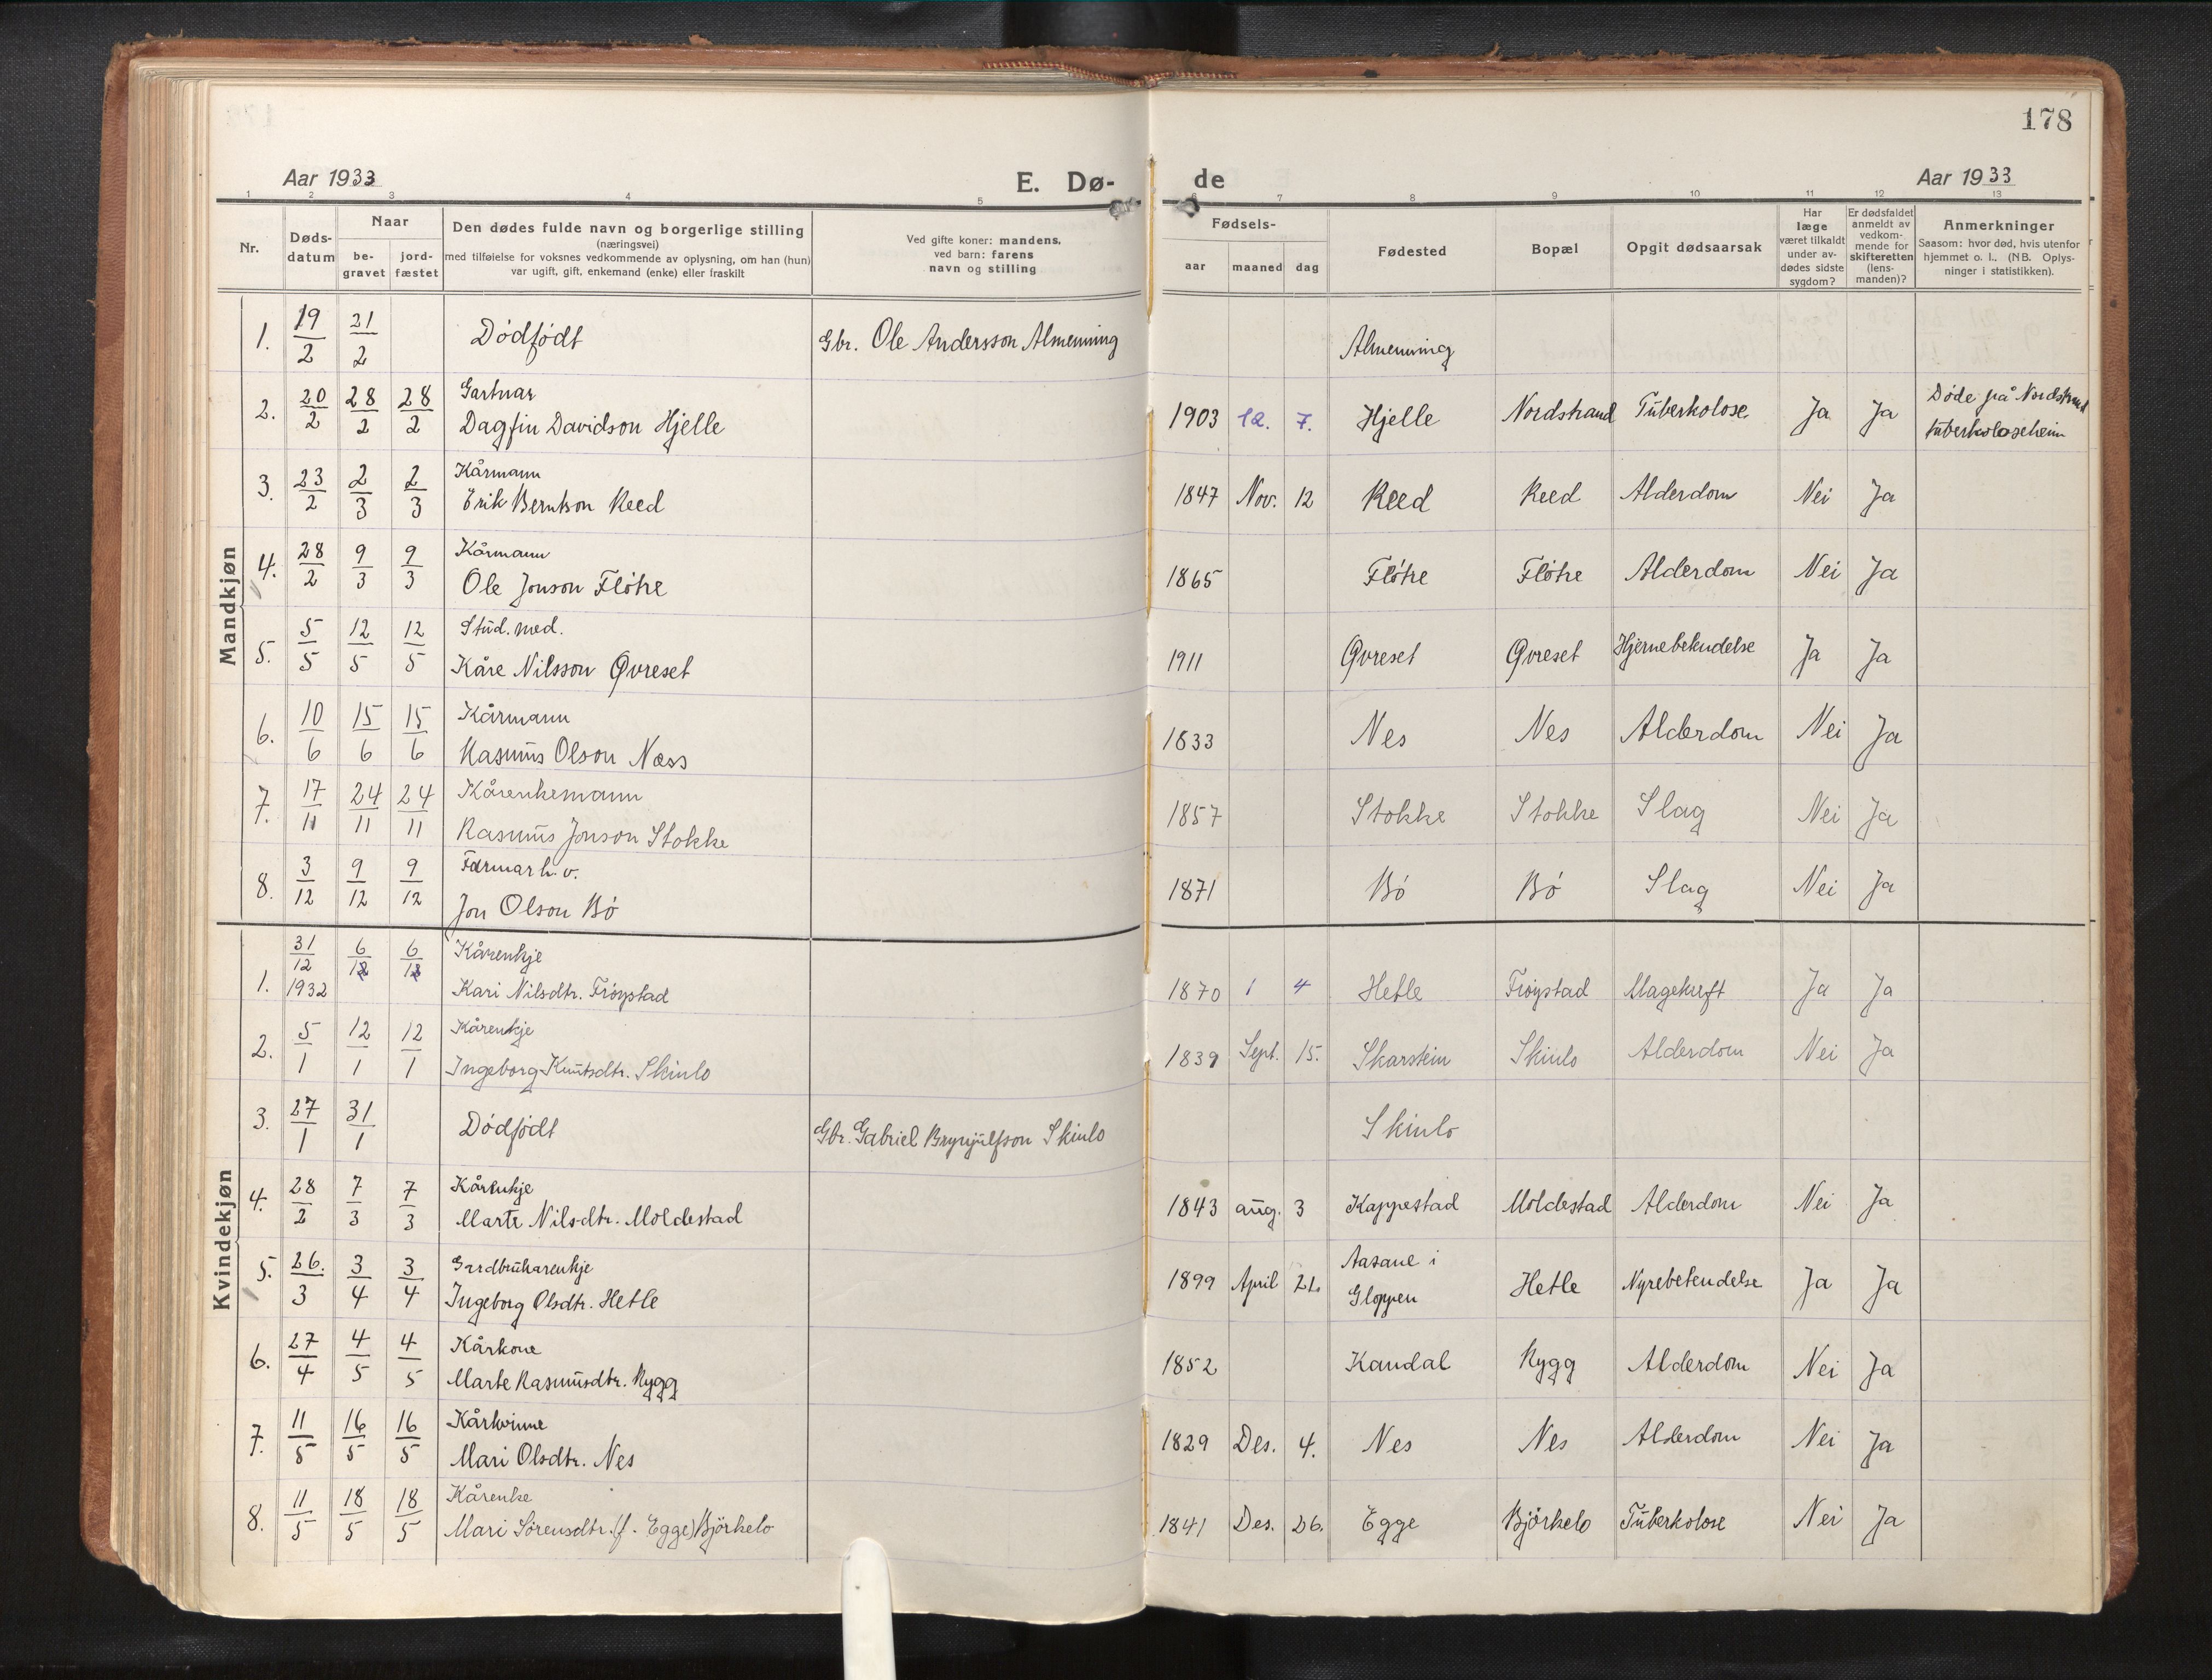 178
Aar 1933
E. Dø-
de
Aar 1933
1 2 3 4 5 6 7 8 9 10 11 12 13
Nr.
Døds-
datum
Naar
be-
gravet
jord-
fæstet
Den dødes fulde navn og borgerlige stilling
(næringsvei)
med tilføielse for voksnes vedkommende av oplysning, om han (hun)
var ugift, gift, enkemand (enke) eller fraskilt
Ved gifte koner: mandens,
ved barn: farens
navn og stilling
Fødsels-
aar maaned dag
Fødested
Bopæl
Opgit dødsaarsak
Har
læge
været tilkaldt
under av-
dødes sidste
sygdom?
Er dødsfaldet
anmeldt av
vedkom-
mende for
skifteretten
(lens-
manden)?
Anmerkninger
Saasom: hvor død, hvis utenfor
hjemmet o. l.. (NB. Oplys-
ninger i statistikken).
Mandkjøn
1. 19/2 21/2 Dödfödt Gbr. Ole Andersson Almenning Almenning
2. 20/2 28/2 28/2 Gartnar
Dagfin Davidson Hjelle 1903 12. 7. Hjelle Nordstrand Tuberkolose Ja Ja Døde på Nordstrand
tuberkoloseheim
3. 23/2 2/3 2/3 Kårmann
Erik Berntson Reed 1847 Nov. 12 Reed Reed Alderdom Nei Ja
4. 28/2 9/3 9/3 Kårmann
Ole Jonson Flötre 1865 Flötre Flötre Alderdom Nei Ja
5. 5/5 12/5 12/5 Stud. med.
Kåre Nilsson Øvreset 1911 Øvreset Øvreset Hjernebetendelse Ja Ja
6. 10/6 15/6 15/6 Kårmann
Rasmus Olson Næss 1833 Nes Nes Alderdom Nei Ja
7. 17/11 24/11 24/11 Kårenkemann
Rasmus Jonson Stokke 1857 Stokke Stokke Slag Nei Ja
8. 3/12 9/12 9/12 Farmar h. v.
Jon Olson Bö 1871 Bö Bö Slag Nei Ja
Kvindekjøn
1. 31/12 1932 6/1 6/1 Kårenkje
Kari Nilsdtr. Fröystad 1870 1 4 Hetle Fröystad Magekreft Ja Ja
2. 5/1 12/1 12/1 Kårenkje
Ingeborg Knutsdtr. Skinlo 1839 Sept. 15. Skarstein Skinlo Alderdom Nei Ja
3. 27/1 31/1 Dödfödt Gbr. Gabriel Brynjulfson Skinlo Skinlo
4. 28/2 7/3 7/3 Kårenkje
Marte Nilsdtr. Moldestad 1843 aug. 3 Kappestad Moldestad Alderdom Nei Ja
5. 26./3 3/4 3/4 Gardbrukarenkje
Ingeborg Olsdtr. Hetle 1899 April 21. Aasane i
Gloppen Hetle Nyrebetendelse Ja Ja
6. 27/4 4/5 4/5 Kårkone
Marte Rasmusdtr. Rygg 1852 Kandal Rygg Alderdom Nei Ja
7. 11/5 16/5 16/5 Kårkvinne
Mari Olsdtr. Nes 1829 Des. 4. Nes Nes Alderdom Nei Ja
8. 11/5 18/5 18/5 Kårenke
Mari Sörensdtr. (f. Egge) Björkelo 1841 Des. 26. Egge Björkelo Tuberkolose Nei Ja